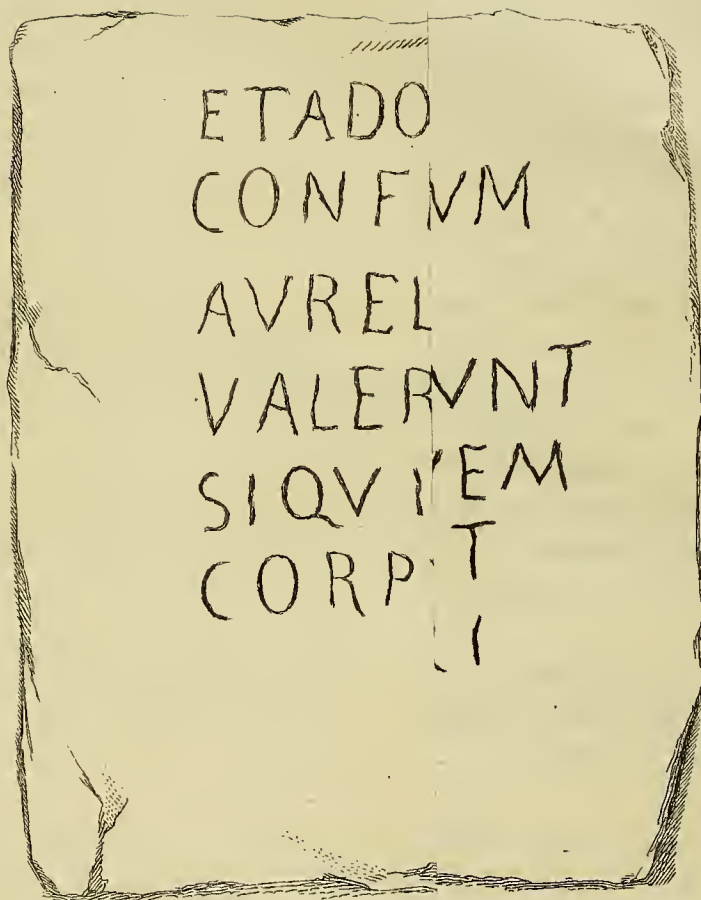 ETADO
CONFVM
AVREL
VALERVNT
SIQVI EM
CORP T
I